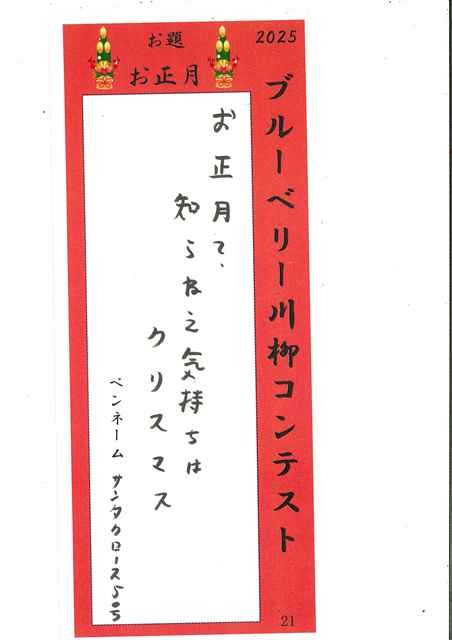 2025
ブルーベリー川柳コンテスト
お題
お正月
お正月て、
知らねえ気持ちは
クリスマス
ペンネーム サンタクロース50号
21